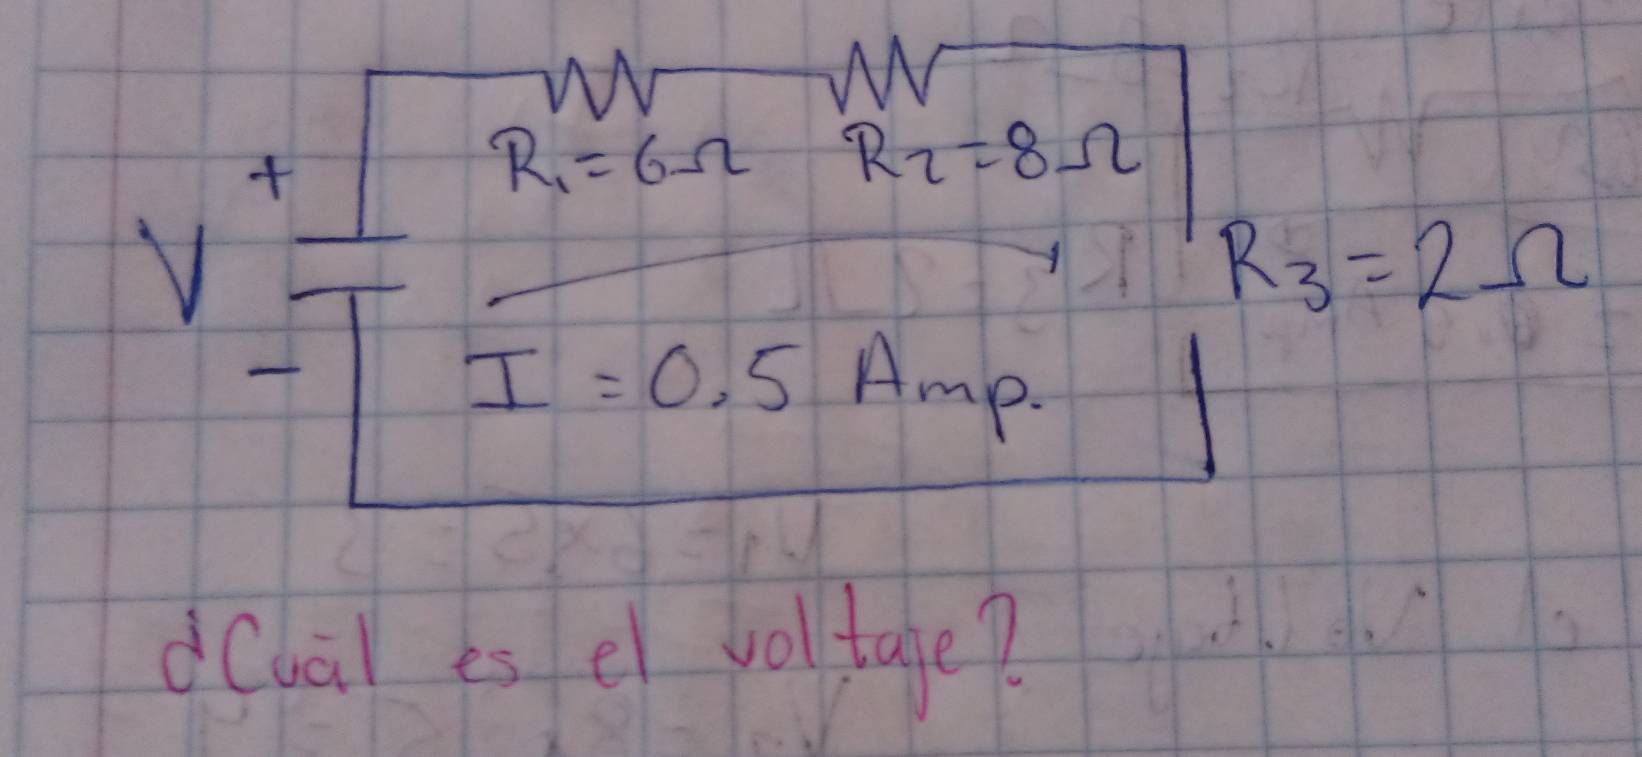 R1=6Ω R2=8Ω
+
V
R3=2Ω
I=0.5 Amp.
-
¿Cuál es el voltaje?